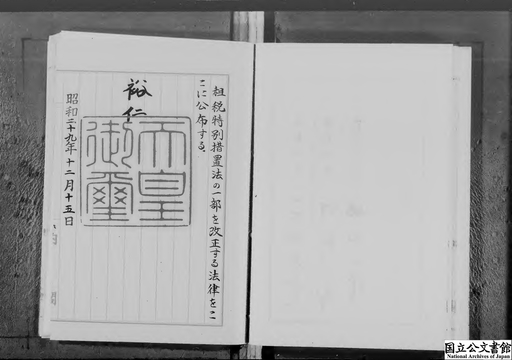 租税特別措置法の一部を改正する法律をこ
こに公布する。
裕仁
天皇
御璽
昭和二十九年十二月十五日
国立公文書館
National Archives of Japan